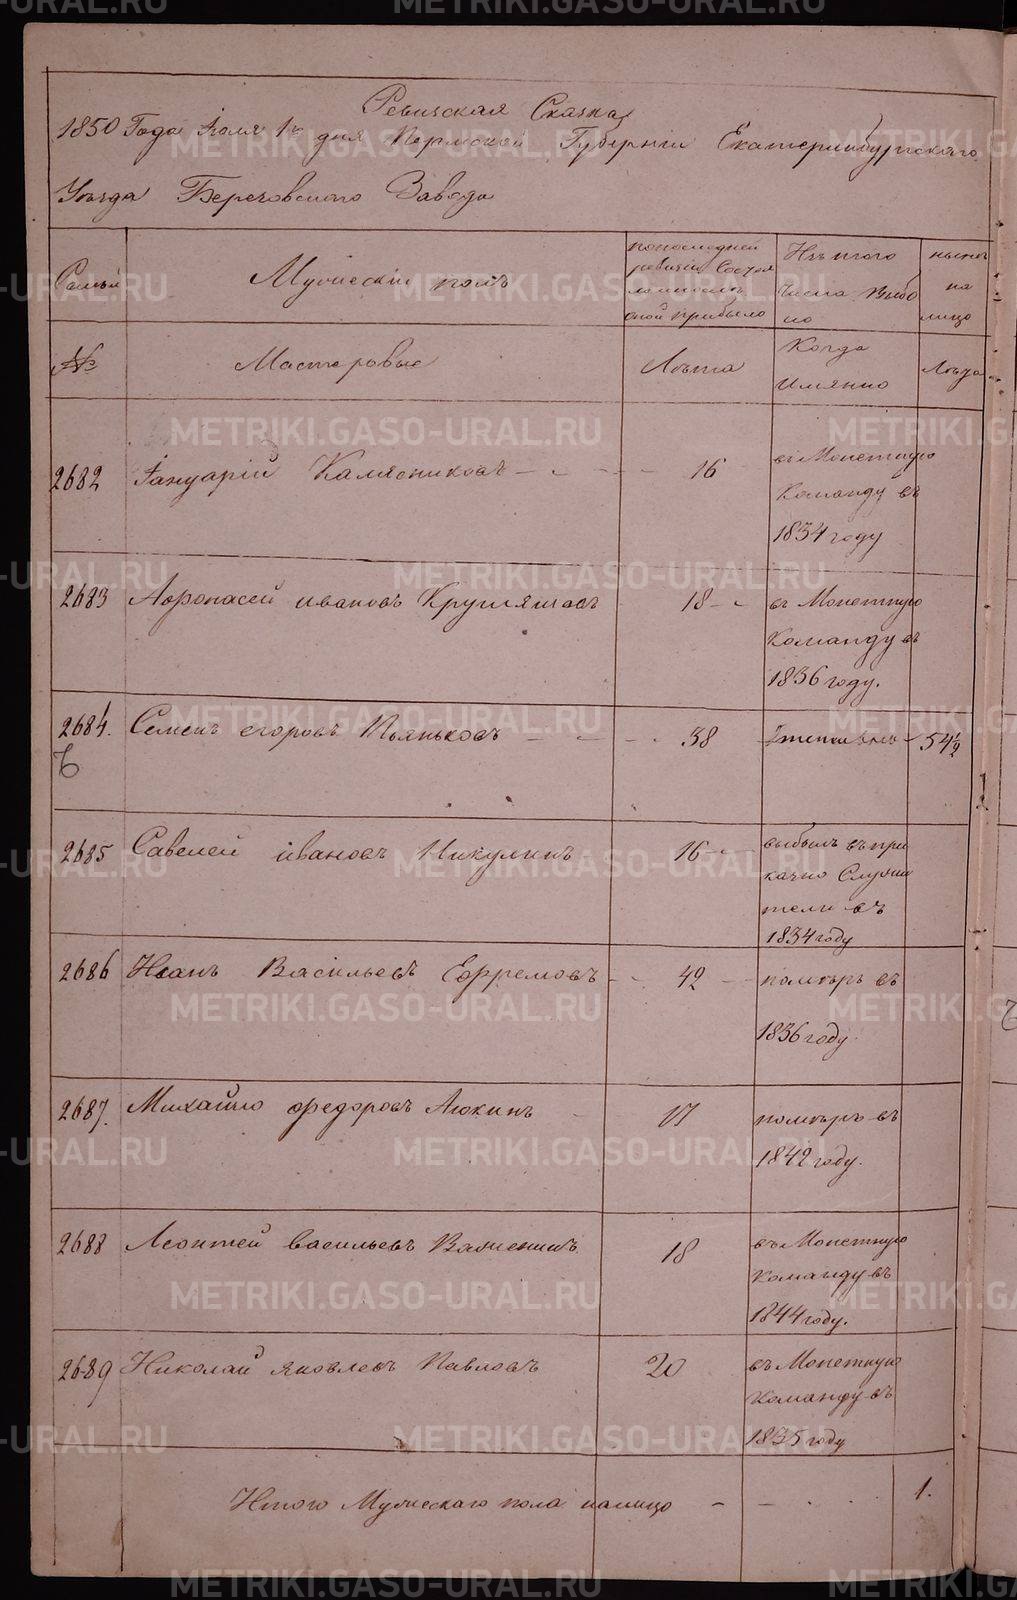 Ревизская Сказка
1850 Года Іюля 1го дня Пермской Губерніи Екатеринбургскаго
Уезда Березовскаго Завода
Семьи
Мужескій полъ
по последней
ревизіи Состоя
ло и после
оной прибыло
Изъ того
Числа выбы
ло
ныне
на
лицо
№
Мастеровые
Лѣта
Когда
Имянно
Лѣта
2682 Іануарій Калясниковъ 16
въ Монетную
Команду въ
1834 году
2683 Афонасей ивановъ 18
въ Монетную
Команду въ
1836 году.
2684. Семенъ егоровъ Пьянковъ 38 54 1/2
Ъ
2685 Савелей ивановъ Никулинъ 16
выбылъ въ при
казно Служи
тели въ
1834 году
2686 Иванъ Васильевъ Ефремовъ 42
помѣръ въ
1836 году
2687. Михайло федоровъ Аюкинъ 17
помѣръ въ
1842 году.
2688 Леонтей васильевъ 18
въ Монетную
Команду въ
1844 году.
2689 Николай яковлевъ Павловъ 20
въ Монетную
Команду въ
1835 году
Итого Мужескаго пола налицо 1.
METRIKI.GASO-URAL.RU